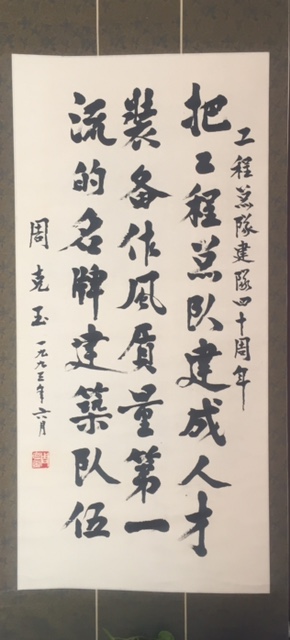 工程总隊建隊四十周年
把工程总队建成人才
装备作风质量第一
流的名牌建築队伍
周克玉 一九九三年六月